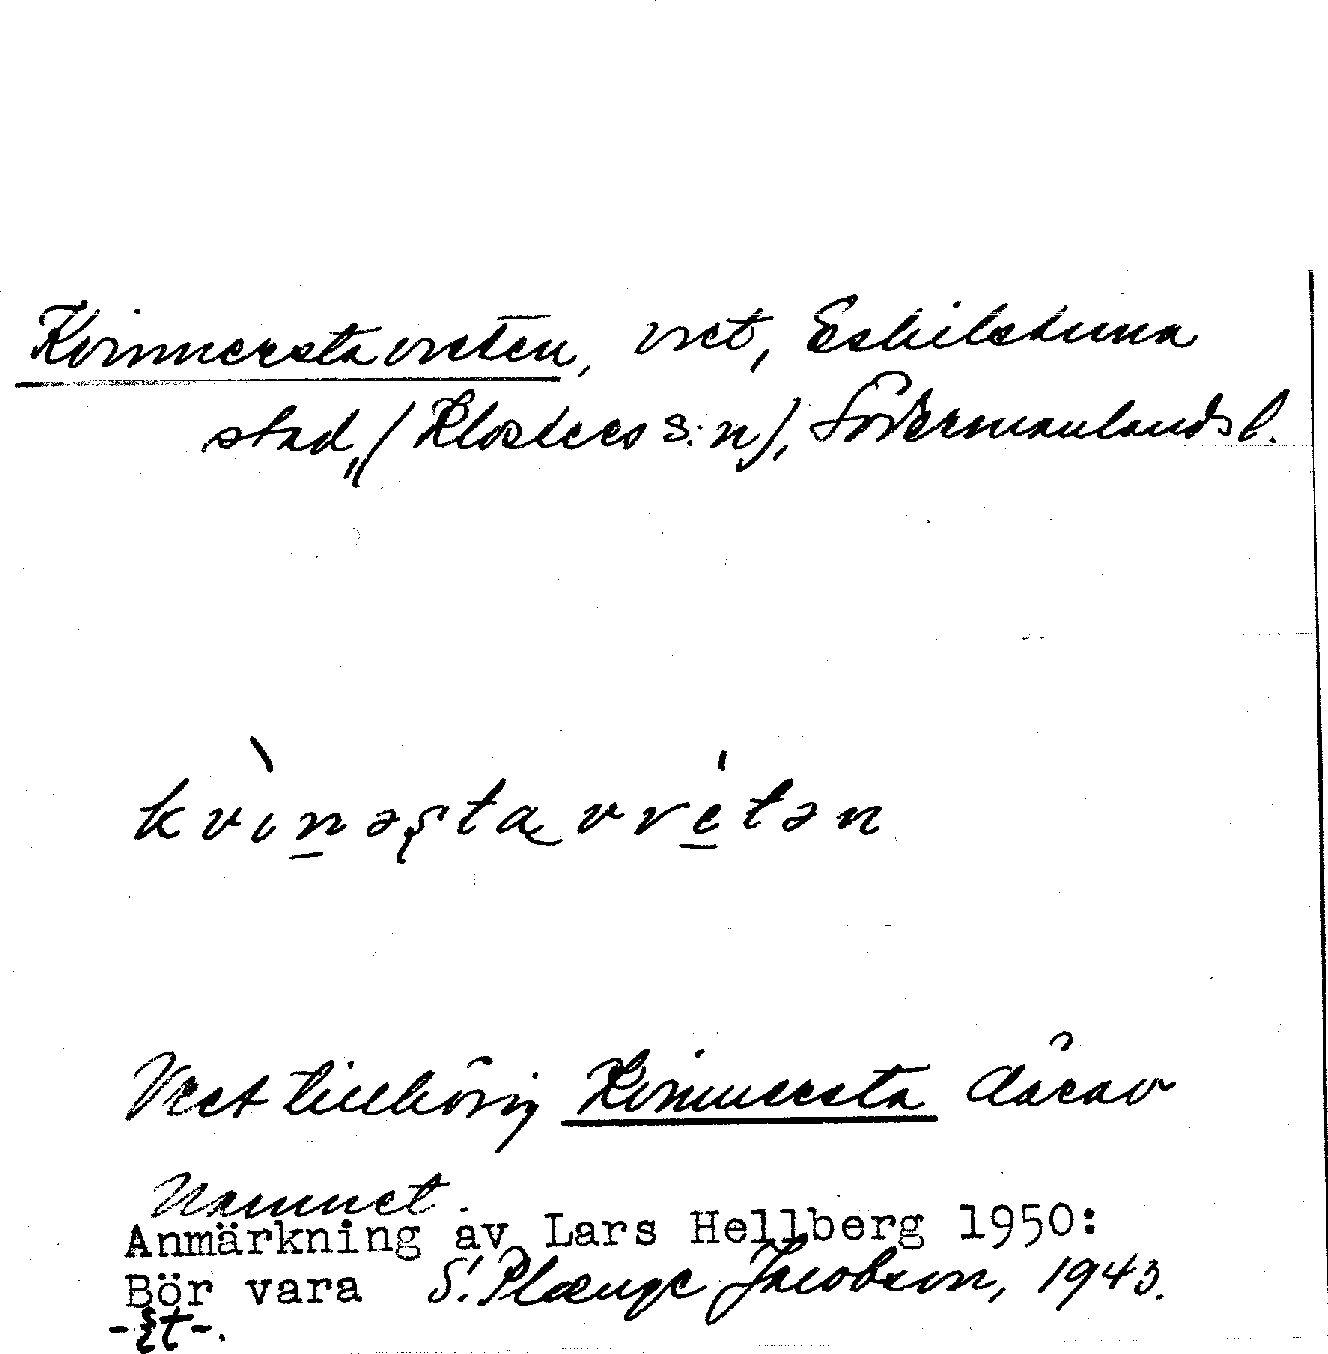 Kvinnerstavreten, vret, Eskilstuna
stad, (Klosters s:n), Södermanlands l.
kvìnəştavrétən
Vret tillhörig Kvinnersta därav
namnet.
Anmärkning av Lars Hellberg 1950:
Bör vara S. Plænge Jacobson, 1943.
-şt-.